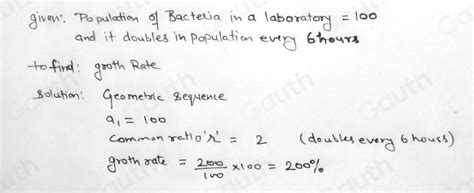 given: Population of Bacteria in a laboratory = 100
and it doubles in population every 6 hours
to find: groth Rate
Solution: Geometric sequence
a₁ = 100
Common ratio 'r' = 2 (doubles every 6 hours)
groth rate = 200/100 × 100 = 200%